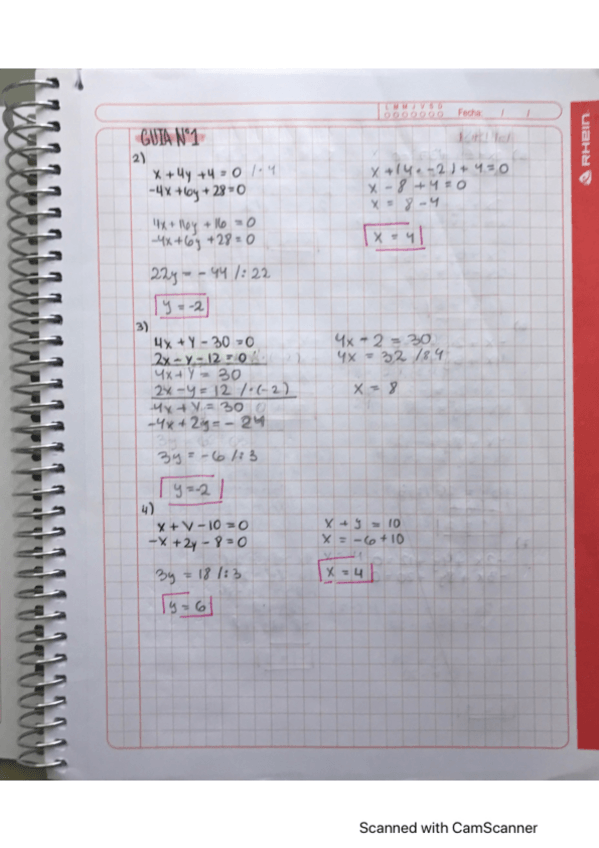 L M M J V S D
Fecha: / /
RHEIN
GUIA N°1
2)
x + 4y + 4 = 0 /·4
-4x + 6y + 28 = 0
4x + 16y + 16 = 0
-4x + 6y + 28 = 0
22y = -44 /: 22
y = -2
x + (4 · -2) + 4 = 0
x - 8 + 4 = 0
x = 8 - 4
x = 4
3)
4x + y - 30 = 0
2x - y - 12 = 0
4x + y = 30
2x - y = 12 /·(-2)
4x + y = 30
-4x + 2y = - 24
3y = -6 /:3
y = -2
4x - 2 = 30
4x = 32 /:4
x = 8
4)
x + y - 10 = 0
-x + 2y - 8 = 0
3y = 18 /:3
y = 6
x + y = 10
x = -6 + 10
x = 4
Scanned with CamScanner